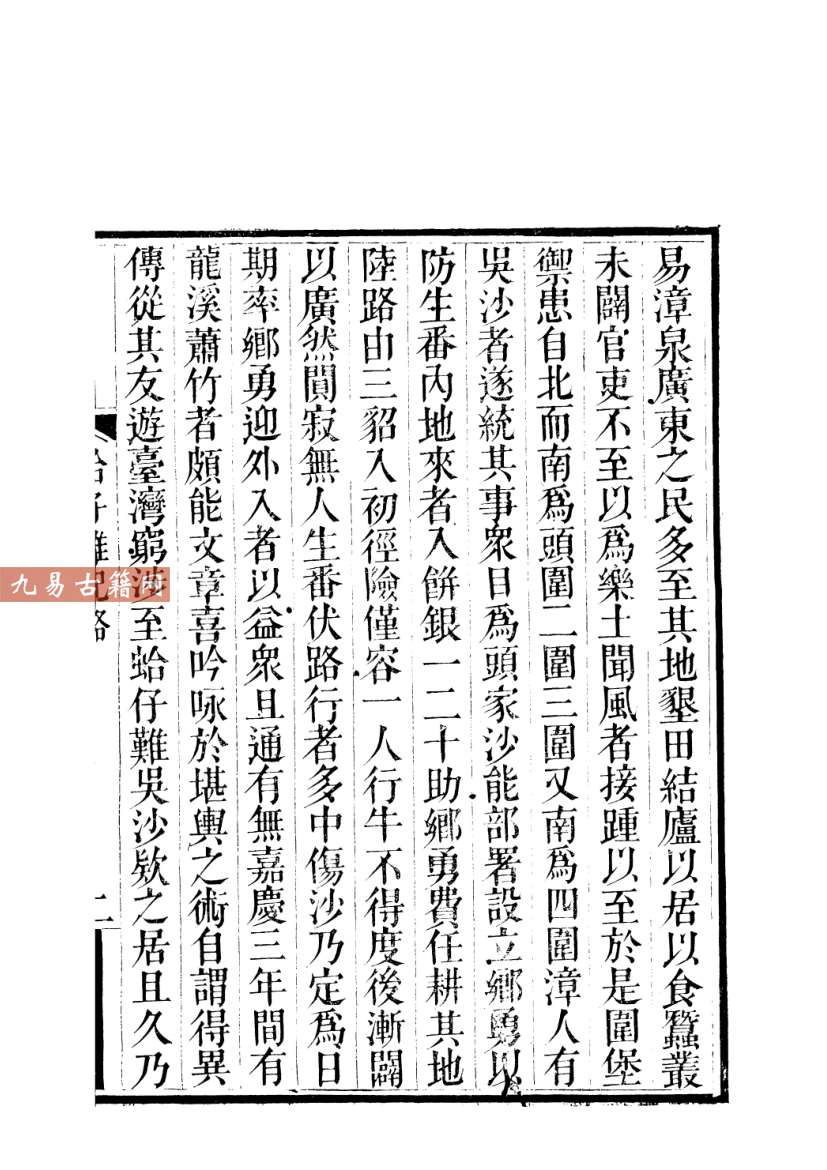 易漳泉廣東之民多至其地墾田結廬以居以食蠶叢
未闢官吏不至以爲樂土聞風者接踵以至於是圍堡
禦患自北而南爲頭圍二圍三圍又南爲四圍漳人有
吳沙者遂統其事衆目爲頭家沙能部署設立鄉勇以
防生番內地來者入餅銀一二十助鄉勇費任耕其地
陸路由三貂入初徑險僅容一人行牛不得度後漸闢
以廣然閴寂無人生番伏路行者多中傷沙乃定爲日
期率鄉勇迎外入者以益衆且通有無嘉慶三年間有
龍溪蕭竹者頗能文章喜吟咏於堪輿之術自謂得異
傳從其友遊臺灣窮涉至蛤仔難吳沙欵之居且久乃
蛤仔難紀略
二
九易古籍网